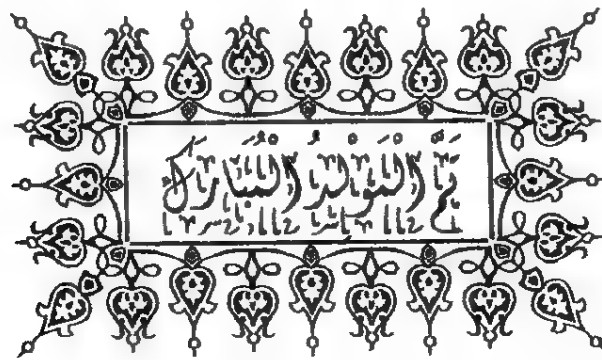 تَمَّ الْمَوْلِدُ الْمُبَارَك